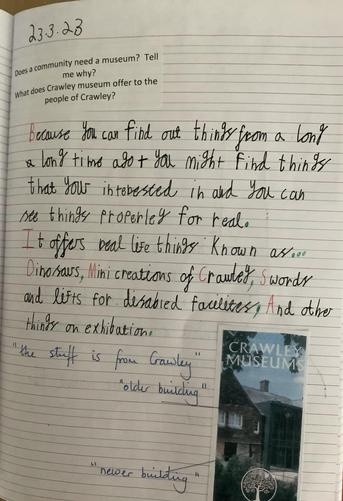 23.3.23
Does a community need a museum? Tell
me why?
What does Crawley museum offer to the
people of Crawley?
Because you can find out things from a long
a long time ago + you might find things
that your intobested in and you can
see things properley for real.
It offers real life things known as...
Dinosaurs, Mini creations of Crawley, Swords
and lifts for disabled facelites, And other
things on exhibation.
"the stuff is from Crawley"
"older building"
CRAWLEY
MUSEUMS
"newer building"